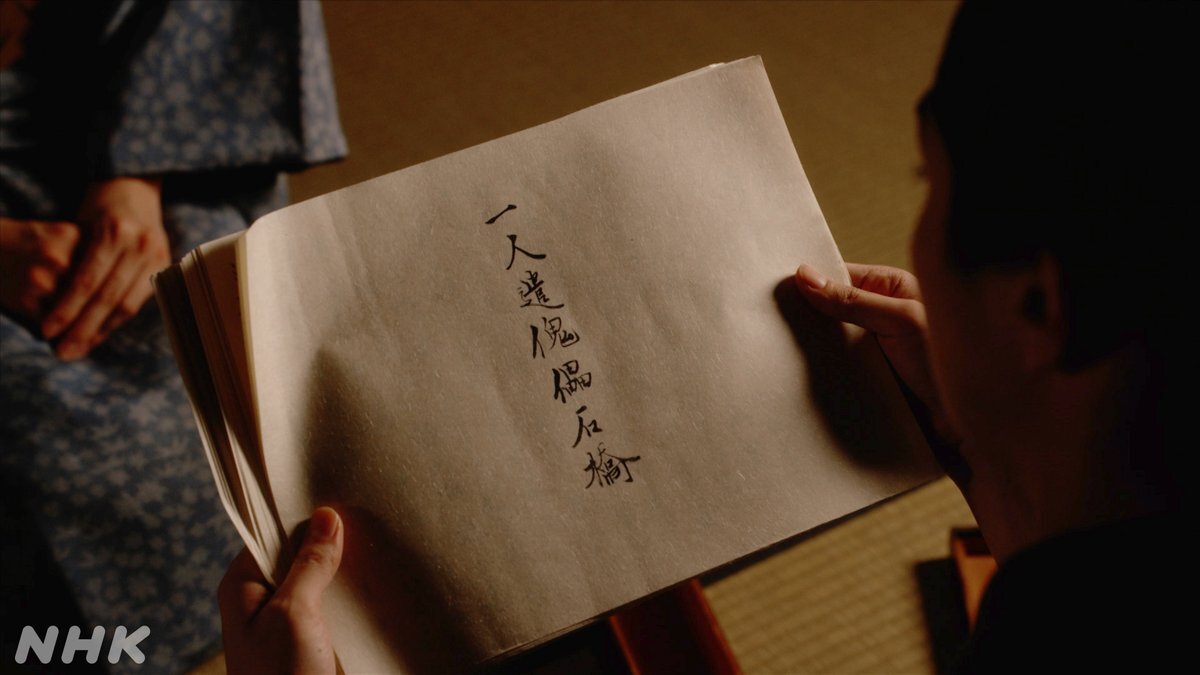 一人遣傀儡石橋
NHK